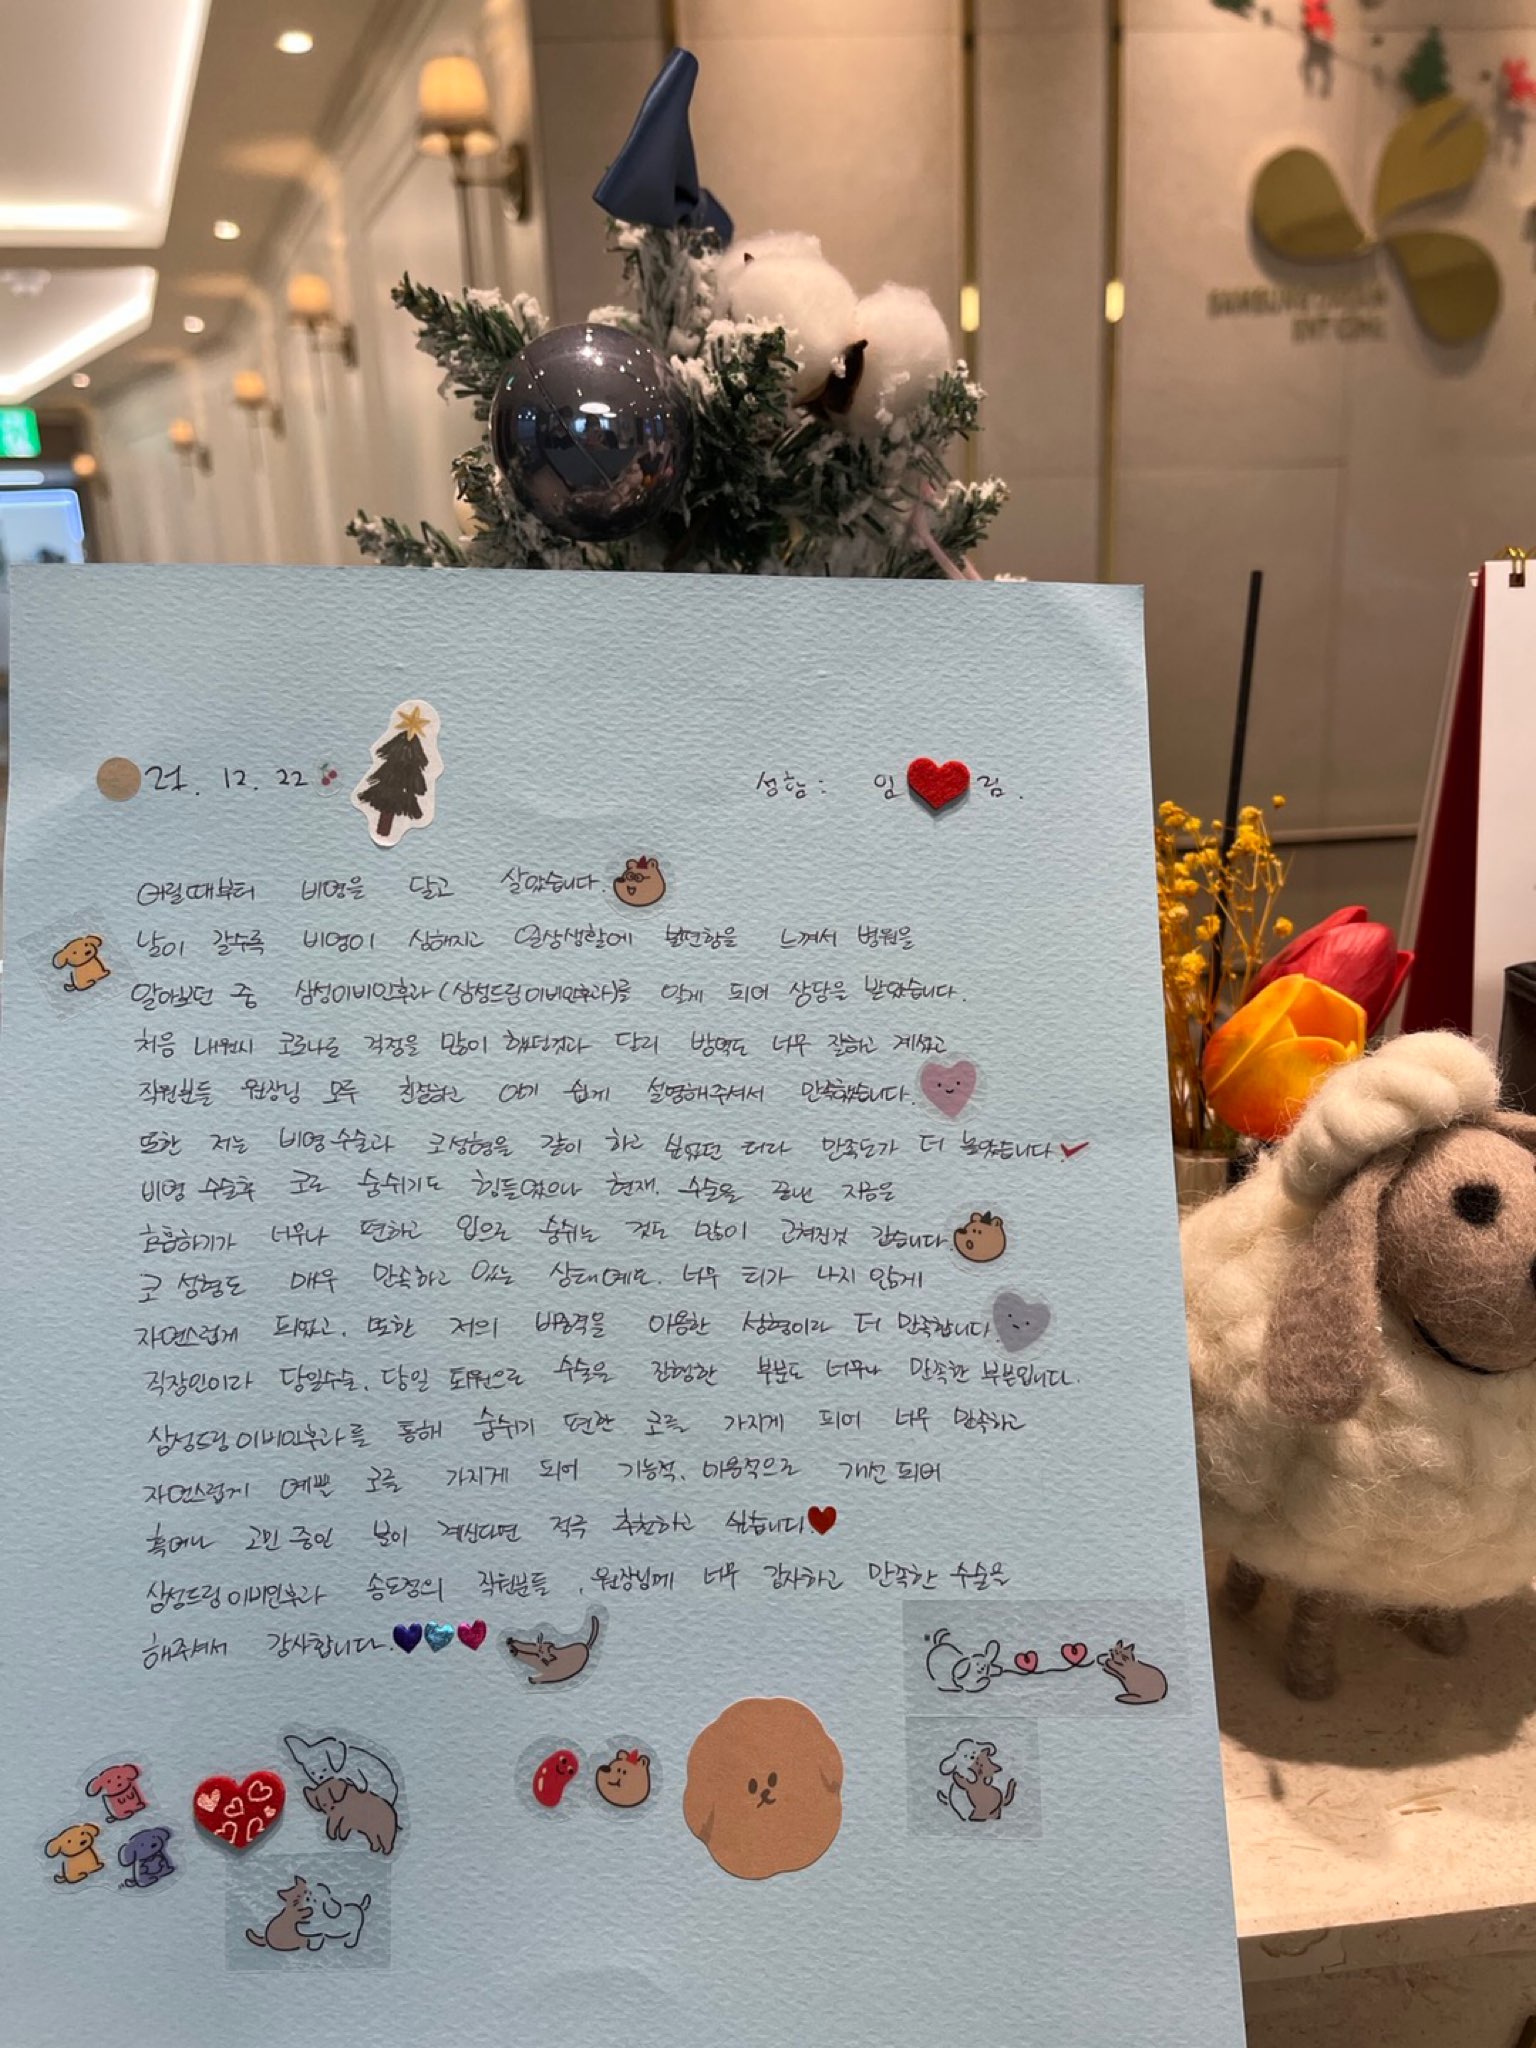 21. 12. 22
성함 : 임 림.
어릴때부터 비염을 달고 살았습니다.
날이 갈수록 비염이 심해지고 일상생활에 불편함을 느껴서 병원을
알아보던 중 삼성이비인후과(삼성드림이비인후과)를 알게 되어 상담을 받았습니다.
처음 내원시 코로나로 걱정을 많이 했던것과 달리 방역도 너무 잘하고 계셨고
직원분들 원장님 모두 친절하고 알기 쉽게 설명해주셔서 만족했습니다.
또한 저는 비염수술과 코성형을 같이 하고 싶었던 터라 만족도가 더 높았습니다
비염 수술후 코로 숨쉬기도 힘들었으나 현재. 수술을 끝낸 지금은
호흡하기가 너무나 편하고 입으로 숨쉬는 것도 많이 고쳐진것 같습니다.
코 성형도 매우 만족하고 있는 상태예요. 너무 티가 나지 않게
자연스럽게 되었고. 또한 저의 비중격을 이용한 성형이라 더 만족합니다.
직장인이라 당일수술. 당일 퇴원으로 수술을 진행한 부분도 너무나 만족한 부분입니다.
삼성드림이비인후과를 통해 숨쉬기 편한 코를 가지게 되어 너무 만족하고
자연스럽게 예쁜 코를 가지게 되어 기능적. 미용적으로 개선되어
혹여나 고민 중인 분이 계신다면 적극 추천하고 싶습니다.
삼성드림이비인후과 송도점의 직원분들, 원장님께 너무 감사하고 만족한 수술을
해주셔서 감사합니다.